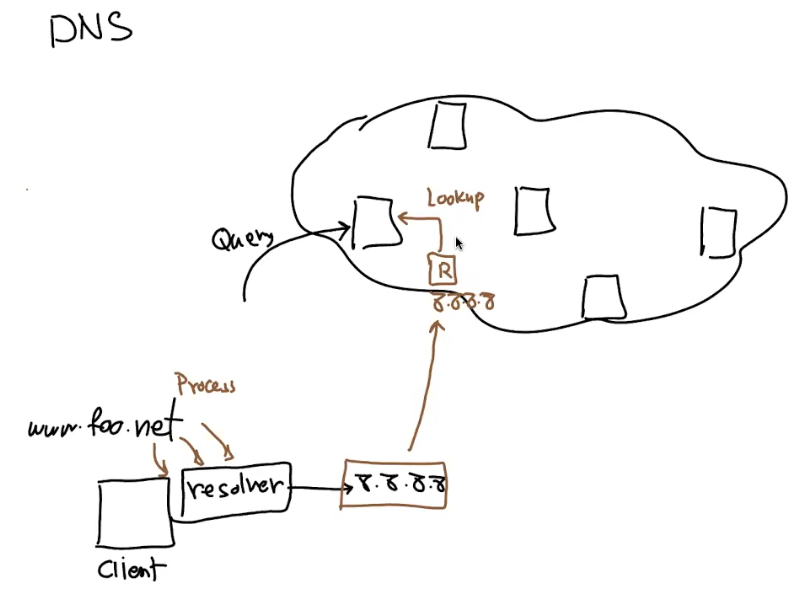 DNS
Lookup
Query
R
8.8.8.8
Process
www.foo.net
resolver
8.8.8.8
Client